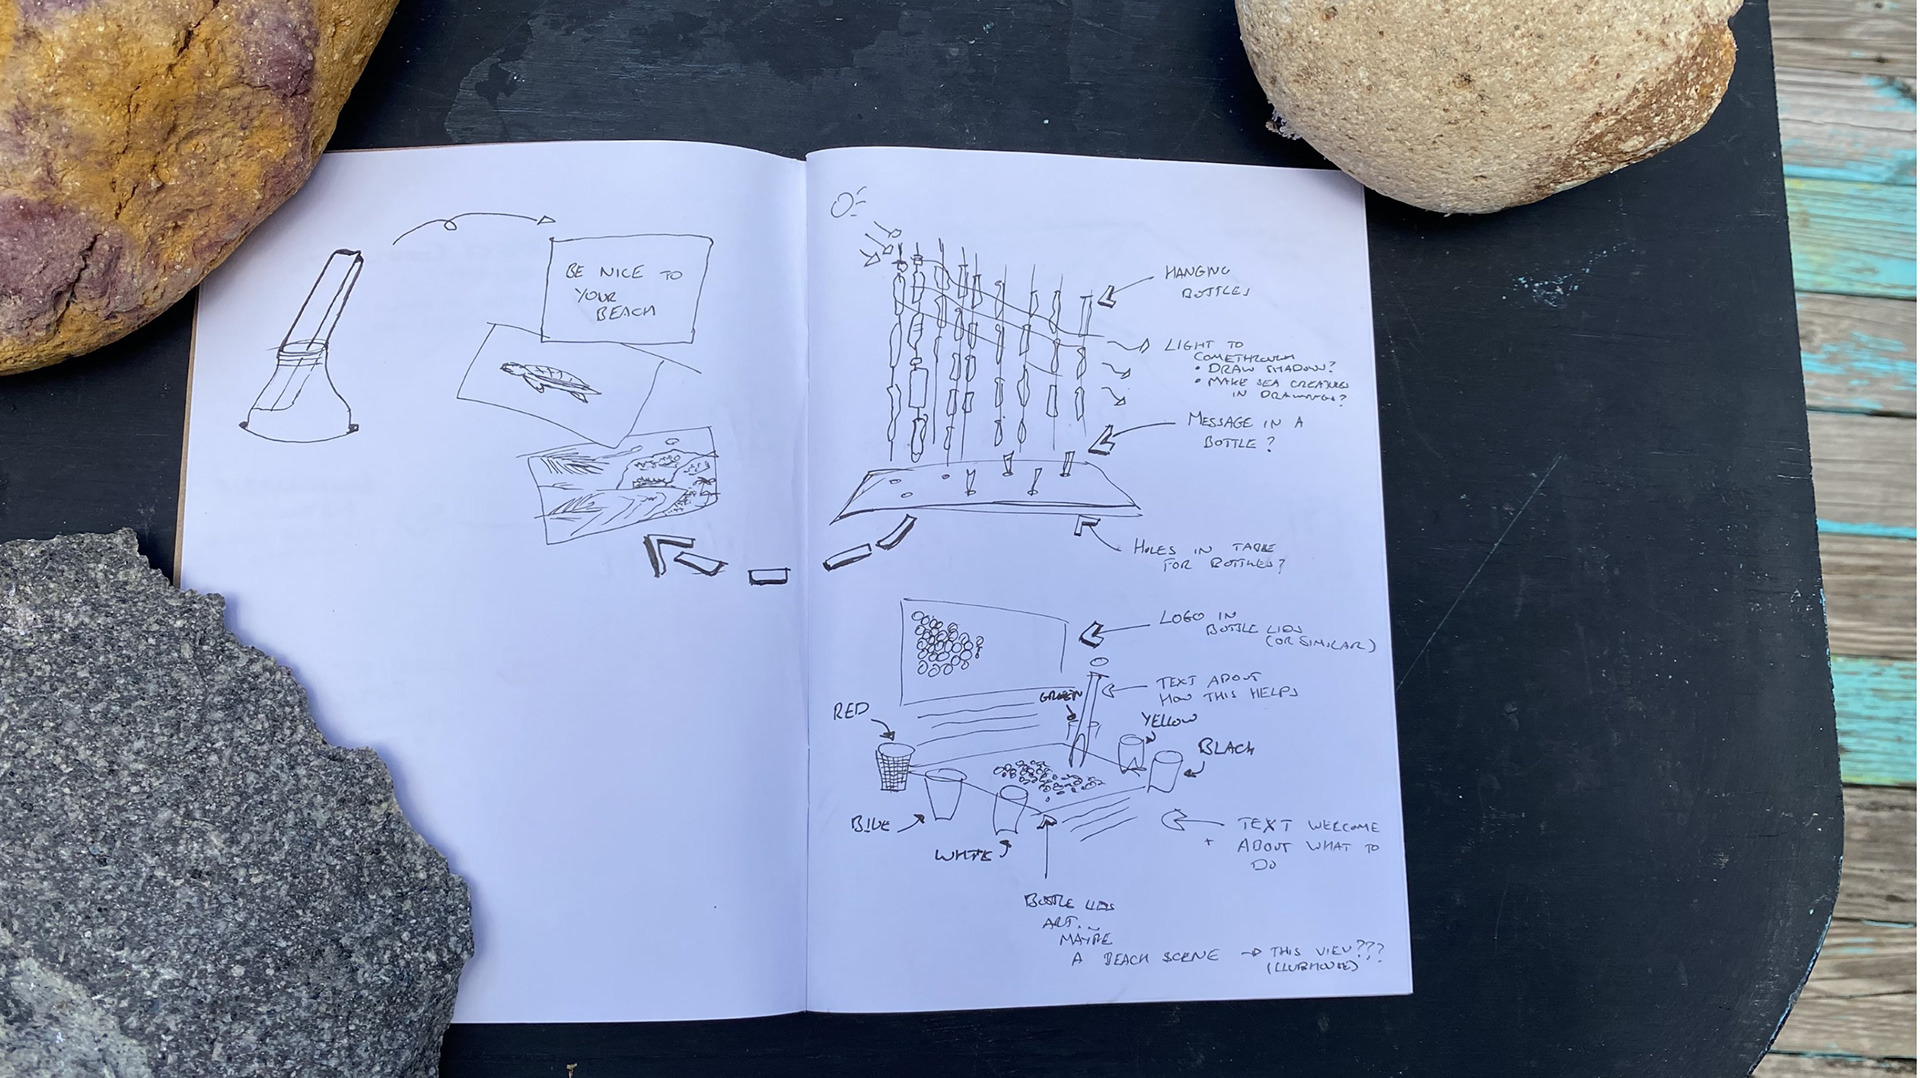 BE NICE TO
YOUR
BEACH
HANGING
BOTTLES
LIGHT TO
COME THROUGH
• DRAW SHADOW?
• MAKE SEA CREATURES
IN DRAWINGS?
MESSAGE IN A
BOTTLE?
HOLES IN TABLE
FOR BOTTLES?
LOGO IN
BOTTLE LIDS
(OR SIMILAR)
TEXT ABOUT
HOW THIS HELPS
GREEN
RED
YELLOW
BLACK
BLUE
WHITE
TEXT WELCOME
+ ABOUT WHAT TO
DO
BOTTLE LIDS
ART...
MAYBE
A BEACH SCENE → THIS VIEW???
(CLUBHOUSE)